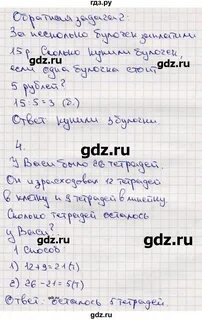 Обратная задача 2:
За несколько булочек заплатили
15 р. Сколько купили булочек
если одна булочка стоит
5 рублей?
15:5=3 (б.)
Ответ купили 3 булочки
4.
У Васи было 26 тетрадей.
Он израсходовал 12 тетрадей
в клетку и 9 тетрадей в линейку
Сколько тетрадей осталось
у Васи?
1 способ
1) 12+9=21(т)
2) 26-21=5(т)
Ответ: осталось 5 тетрадей
gdz.ru
gdz.ru
gdz.ru
gdz.ru
gdz.ru
gdz.ru
gdz.ru